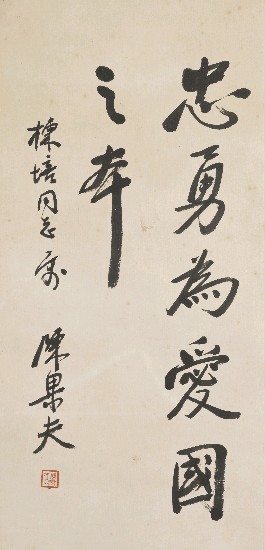 忠勇為愛國
之本
標培同志屬
陳果夫